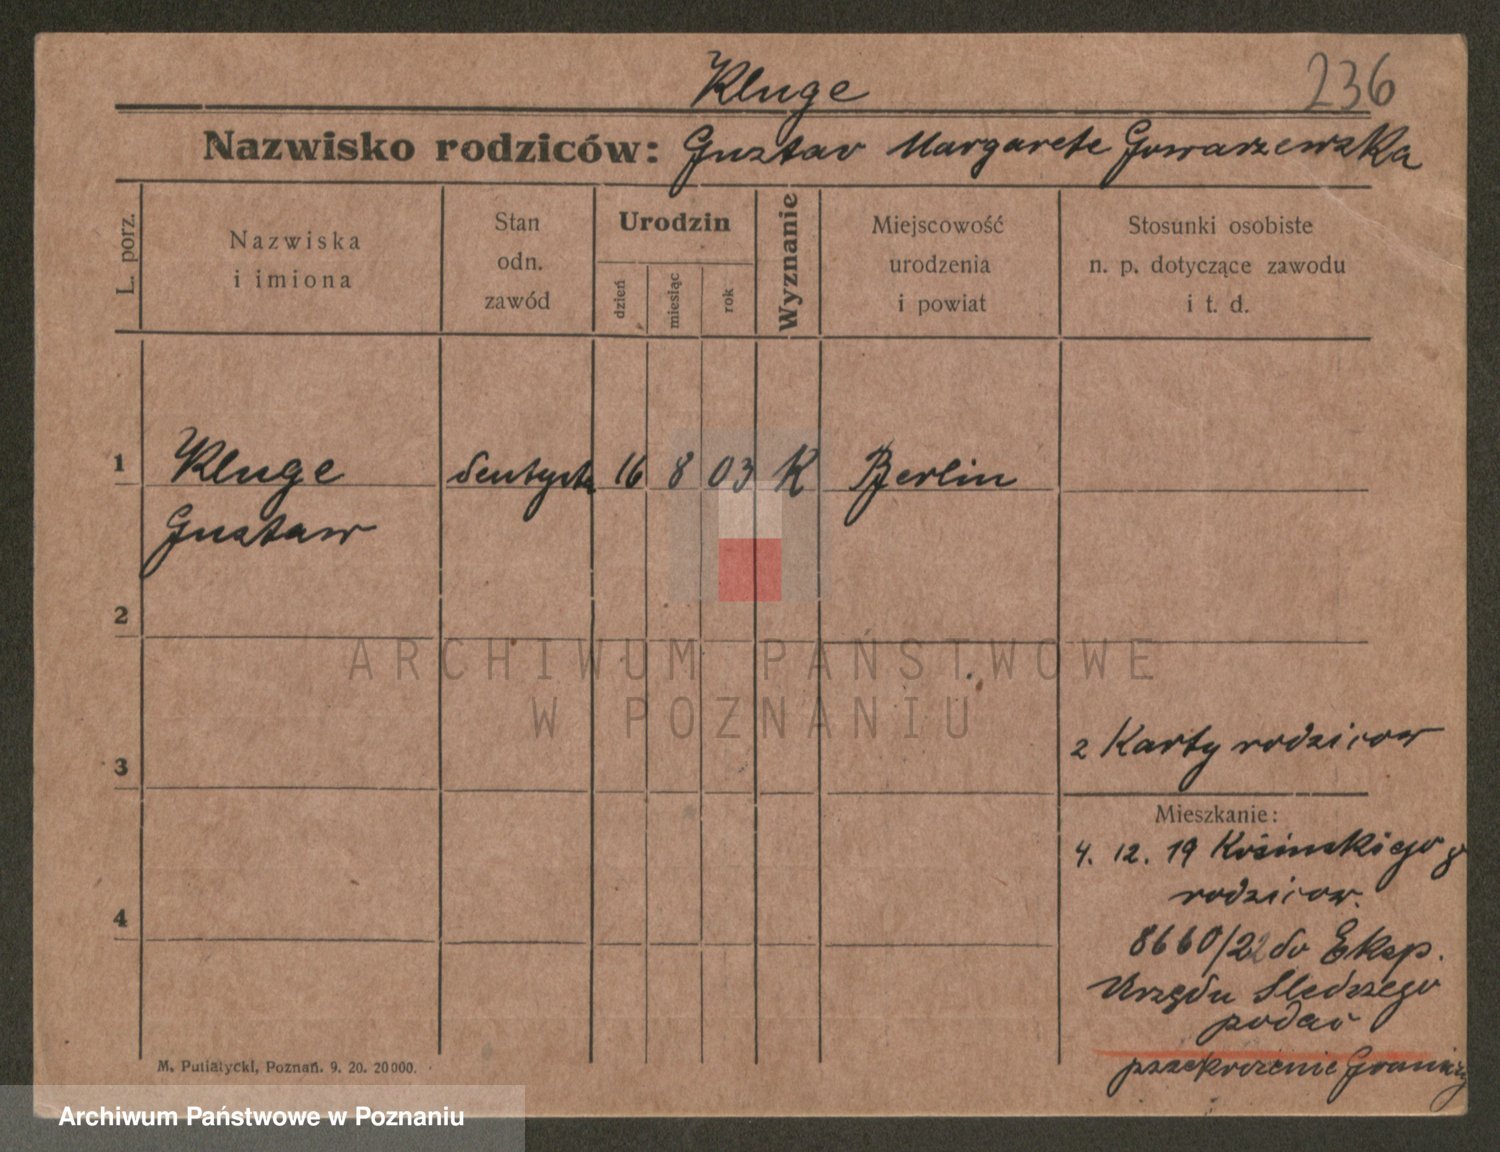 Kluge 236
Nazwisko rodziców: Gustav Margarete Gowarzewska
L. porz.
Nazwiska
i imiona
Stan
odn.
zawód
Urodzin
dzień
miesiąc
rok
Wyznanie
Miejscowość
urodzenia
i powiat
Stosunki osobiste
n. p. dotyczące zawodu
i t. d.
1 Kluge dentysta 16 8 03 K Berlin
Gustaw
2
ARCHIWUM PAŃSTWOWE
W POZNANIU
z Karty rodzicow
3
Mieszkanie:
4. 12. 19 Kosinskiego 8
rodzicow.
4
8660/22 do Eksp.
Urzędu Sledczego
podac
przekroczenie Granicy
M. Putiatycki, Poznań. 9. 20. 20000.
Archiwum Państwowe w Poznaniu